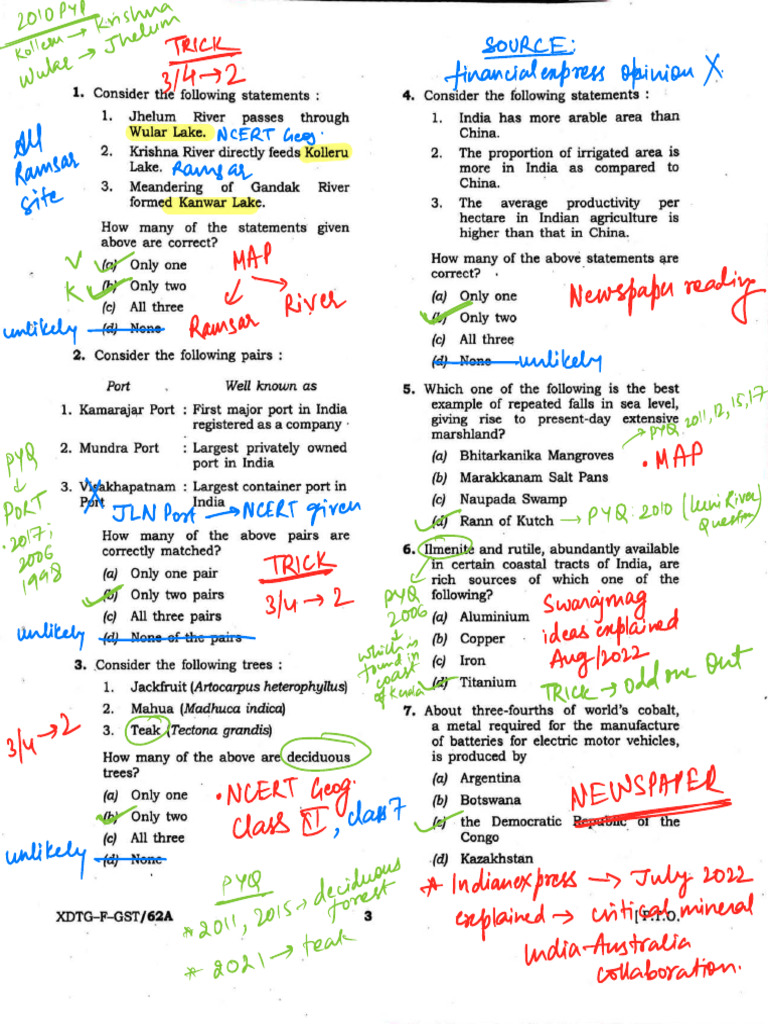 2010 PYQ
Kolleru → Krishna
Wular → Jhelum
TRICK
3/4 → 2
1. Consider the following statements :
1. Jhelum River passes through
Wular Lake. NCERT Geog.
2. Krishna River directly feeds Kolleru
Lake. Ramsar
3. Meandering of Gandak River
formed Kanwar Lake.
All
Ramsar
site
How many of the statements given
above are correct?
(a) Only one
(b) Only two
(c) All three
(d) None
unlikely
MAP
Ramsar
River
2. Consider the following pairs :
Port Well known as
1. Kamarajar Port : First major port in India
registered as a company
2. Mundra Port : Largest privately owned
port in India
3. Visakhapatnam : Largest container port in
Port India
X JLN Port → NCERT given
PYQ
↓
PORT
• 2017;
2006
1998
How many of the above pairs are
correctly matched?
(a) Only one pair
(b) Only two pairs
(c) All three pairs
(d) None of the pairs
unlikely
TRICK
3/4 → 2
3. Consider the following trees :
1. Jackfruit (Artocarpus heterophyllus)
2. Mahua (Madhuca indica)
3. Teak (Tectona grandis)
3/4 → 2
How many of the above are deciduous
trees?
(a) Only one
(b) Only two
(c) All three
(d) None
unlikely
• NCERT Geog.
Class XI, class 7
PYQ
* 2011, 2015 → deciduous
forest
* 2021 → teak
XDTG-F-GST/62A
SOURCE:
financialexpress opinion X
4. Consider the following statements :
1. India has more arable area than
China.
2. The proportion of irrigated area is
more in India as compared to
China.
3. The average productivity per
hectare in Indian agriculture is
higher than that in China.
How many of the above statements are
correct?
(a) Only one
(b) Only two
(c) All three
(d) None unlikely
Newspaper reading
5. Which one of the following is the best
example of repeated falls in sea level,
giving rise to present-day extensive
marshland?
(a) Bhitarkanika Mangroves
(b) Marakkanam Salt Pans
(c) Naupada Swamp
(d) Rann of Kutch → PYQ: 2010 (Luni River
Question)
→ PYQ: 2011, 12, 15, 17
• MAP
6. Ilmenite and rutile, abundantly available
in certain coastal tracts of India, are
rich sources of which one of the
following?
(a) Aluminium
(b) Copper
(c) Iron
(d) Titanium
PYQ
2006
↓
which is
found in
coast
of Kerala
Swarajmag
ideas explained
Aug/2022
TRICK → Odd one Out
7. About three-fourths of world's cobalt,
a metal required for the manufacture
of batteries for electric motor vehicles,
is produced by
(a) Argentina
(b) Botswana
(c) the Democratic Republic of the
Congo
(d) Kazakhstan
NEWSPAPER
* Indianexpress → July 2022
explained → critical mineral
India-Australia
collaboration.
3
[ P.T.O.